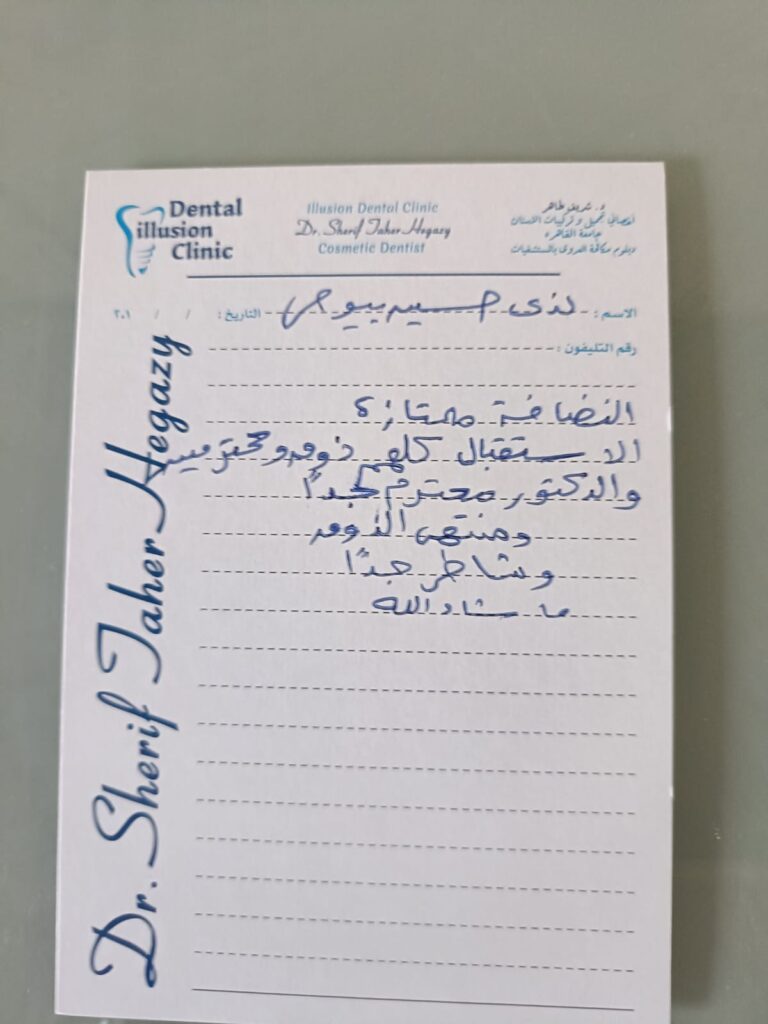 Dental
illusion
Clinic
Illusion Dental Clinic
Dr. Sherif Taher Hegazy
Cosmetic Dentist
د. شريف طاهر
اخصائي تجميل و تركيبات الاسنان
جامعة القاهرة
دبلوم مكافحة العدوى بالمستشفيات
الاسم : لذى حسين بيومى التاريخ : / / ٢٠١
رقم التليفون :
النضافة ممتازة
الاستقبال كلهم ذوق ومحترمين
والدكتور محترم جدًا
ومنتهى الذوق
وشاطر جدًا
ما شاء الله
Dr. Sherif Taher Hegazy